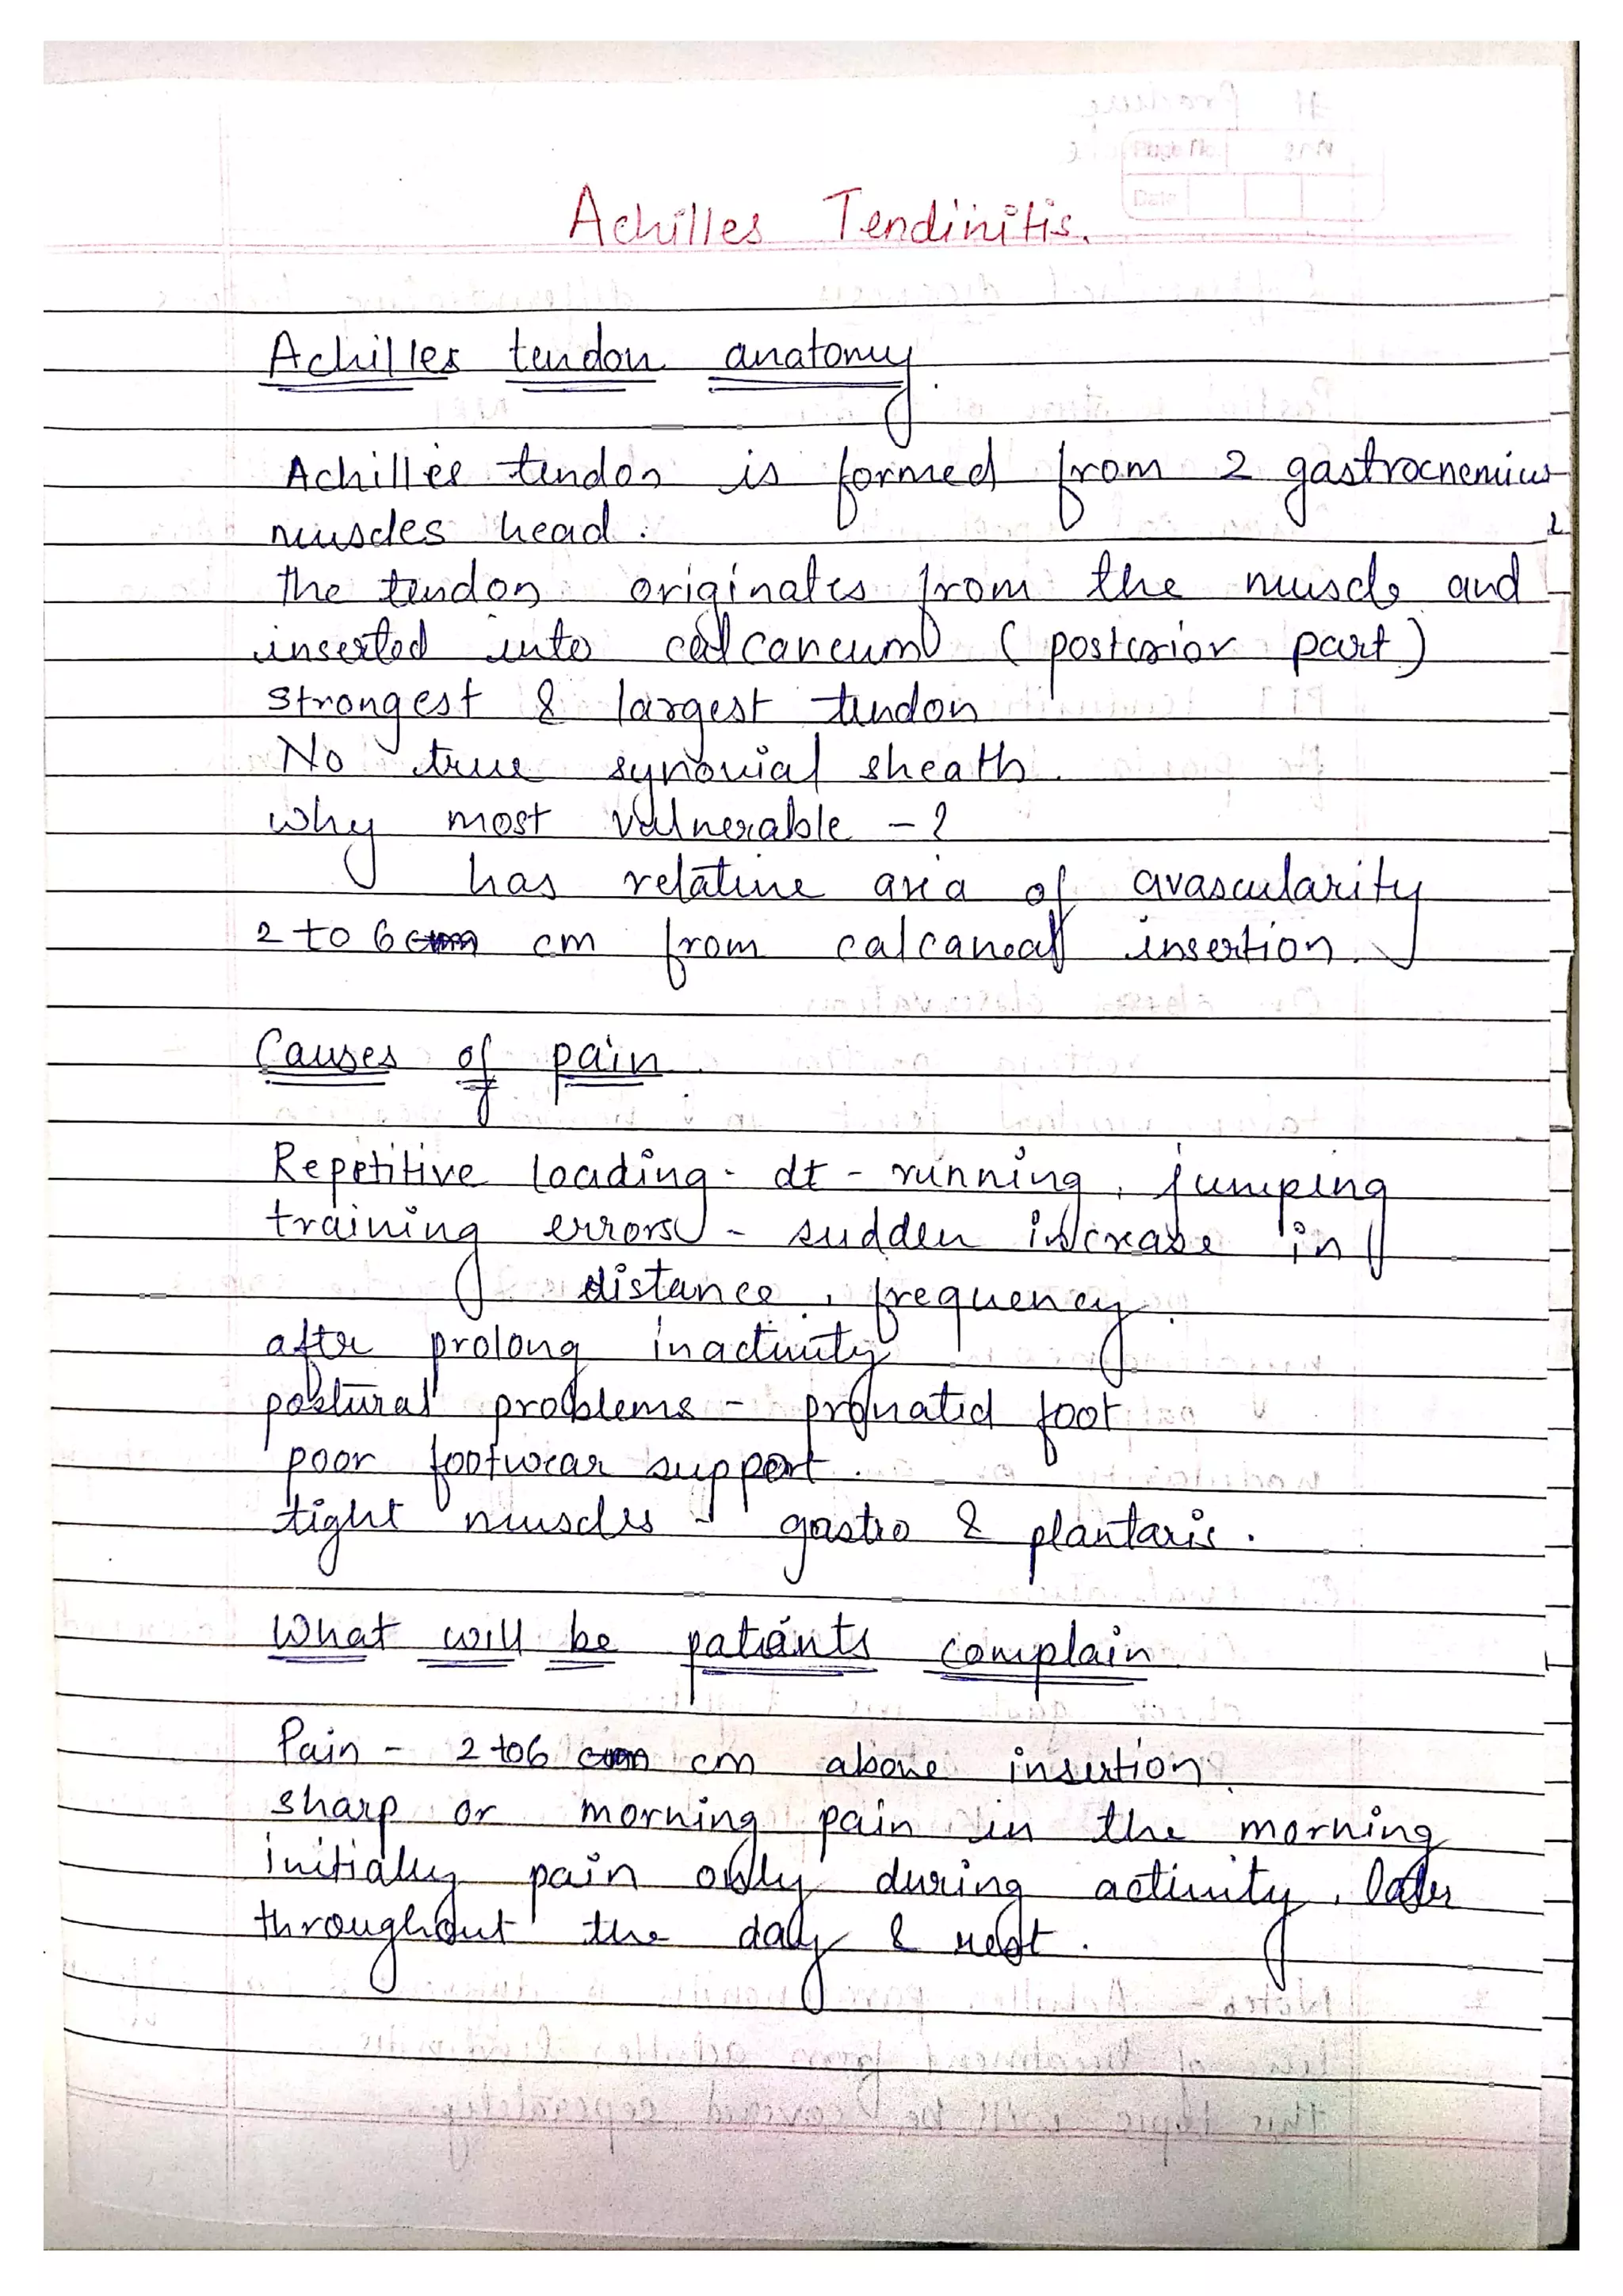 Achilles Tendinitis.
Achilles tendon anatomy.
Achilles tendon is formed from 2 gastrocnemius
muscles head.
the tendon originates from the muscle and
inserted into calcaneum (posterior part)
strongest & largest tendon
No true synovial sheath.
why most vulnerable - ?
has relative area of avascularity
2 to 6 cm from calcaneal insertion.
Causes of pain.
Repetitive loading - dt - running, jumping
training errors - sudden increase in
distance, frequency.
after prolong inactivity
postural problems - pronated foot
poor footwear support.
tight muscles - gastro & plantaris.
What will be patients complain.
Pain - 2 to 6 cm above insertion.
sharp or morning pain in the morning
initially pain only during activity, later
throughout the day & rest.